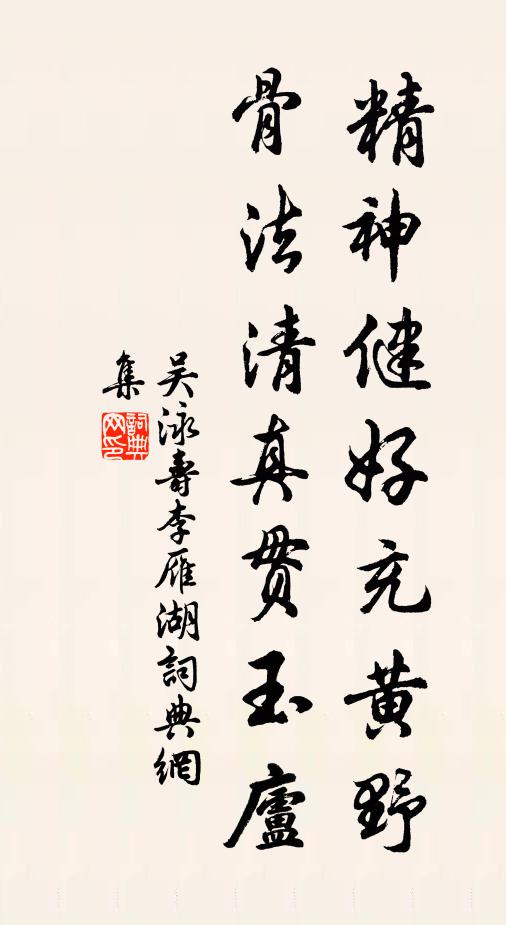 精神健好充黄野
骨法清真貫玉廬
吴泳壽李雁湖詞典網
集
詞典網印